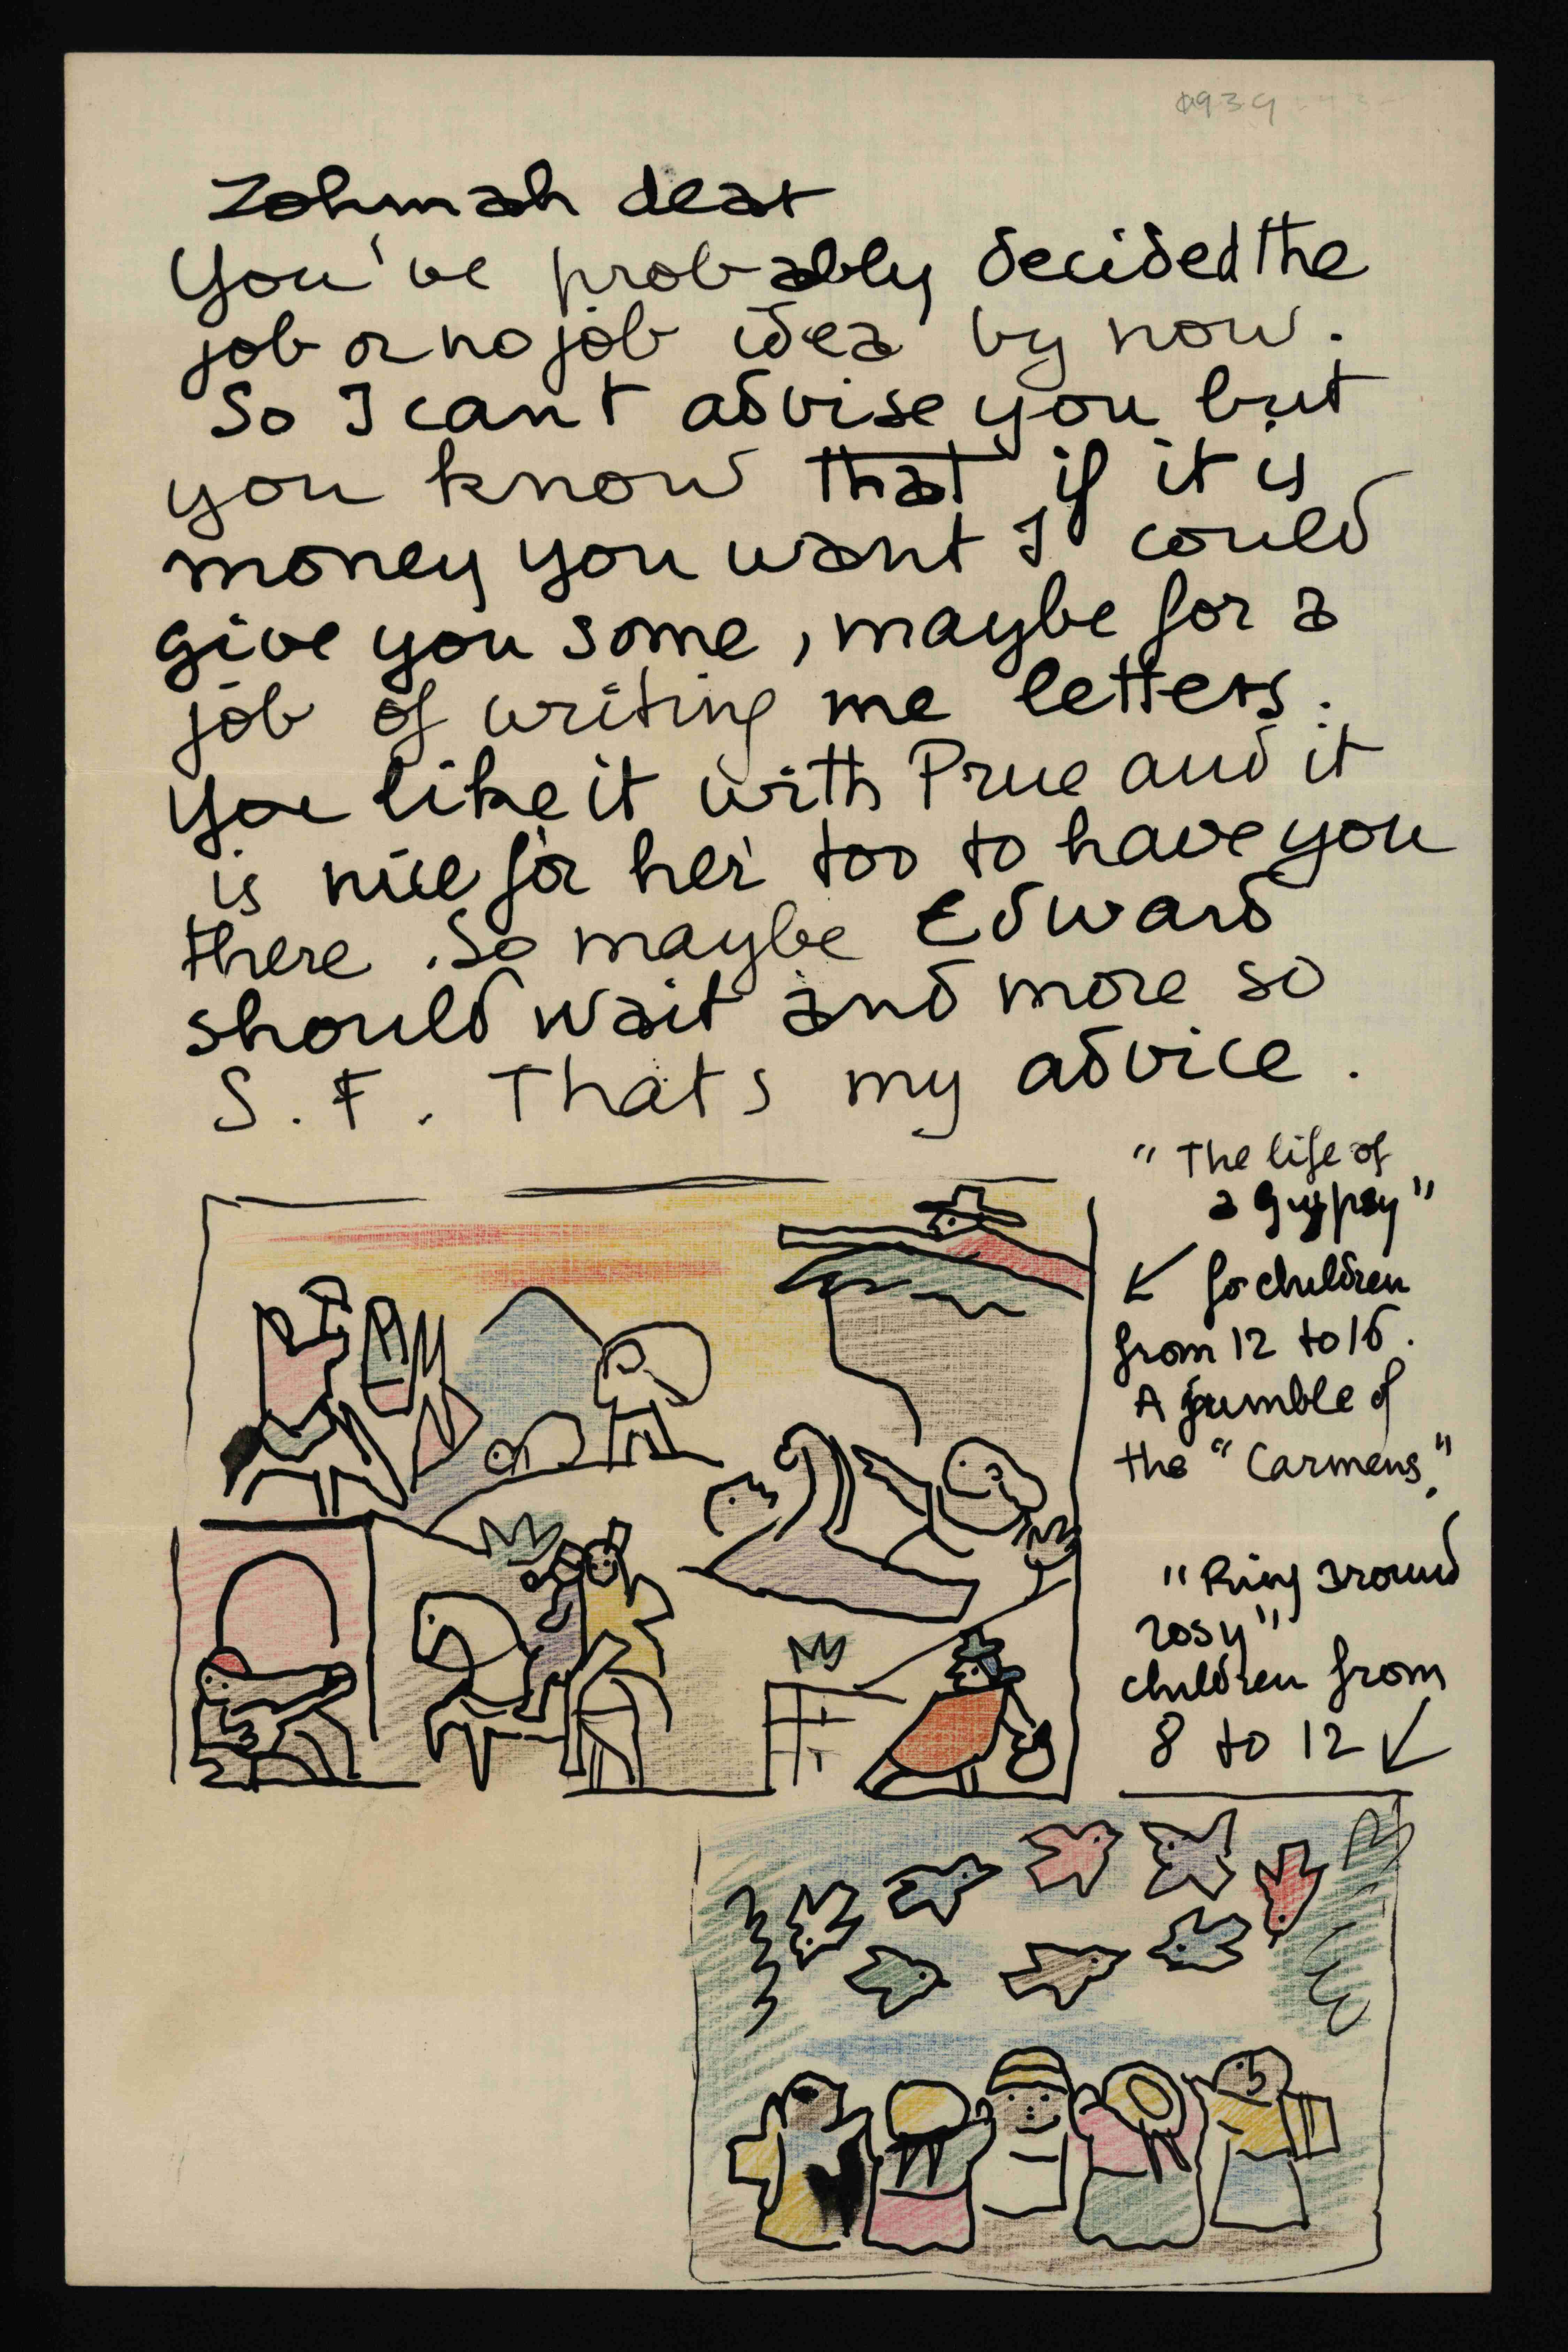 1939
Zohmah dear
You've probably decided the
job or no job idea by now.
So I can't advise you but
you know that if it is
money you want I could
give you some, maybe for a
job of writing me letters.
You like it with Prue and it
is nice for her too to have you
there. So maybe Edward
should wait and more so
S. F. Thats my advice.
"The life of
a gypsy"
for children
from 12 to 16.
A jumble of
the "Carmens".
"Ring around
rosy"
children from
8 to 12